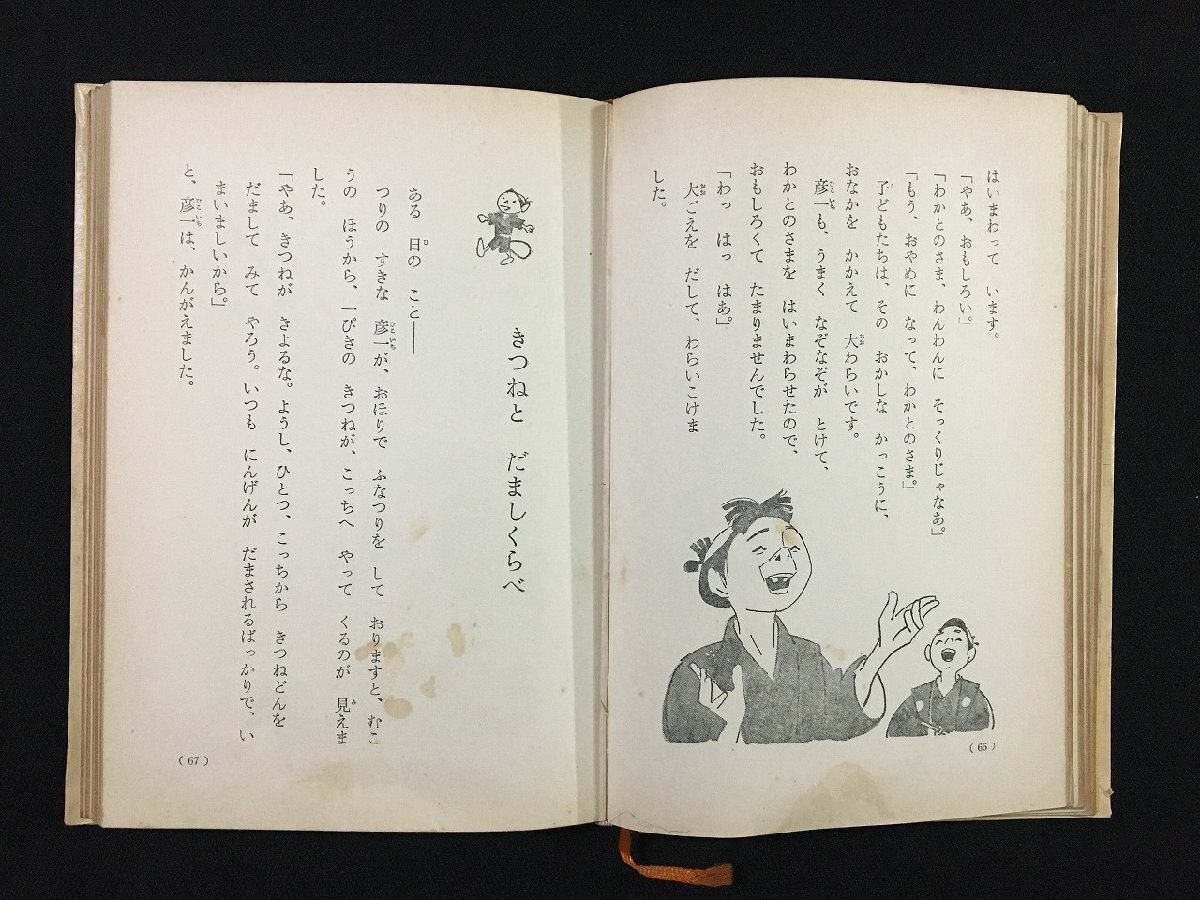 はいまわって います。
「やあ、おもしろい。」
「わかとのさま、わんわんに そっくりじゃなあ。」
「もう、おやめに なって、わかとのさま。」
子どもたちは、その おかしな かっこうに、
おなかを かかえて 大わらいです。
彦一も、うまく なぞなぞが とけて、
わかとのさまを はいまわらせたので、
おもしろくて たまりませんでした。
「わっ はっ はあ。」
大ごえを だして、わらいこけま
した。
(66)
きつねと だましくらべ
ある 日の こと――
つりの すきな 彦一が、おにりで ふなつりを して おりますと、むこ
うの ほうから、一ぴきの きつねが、こっちへ やって くるのが 見えま
した。
「やあ、きつねが きよるな。ようし、ひとつ、こっちから きつねどんを
だまして みて やろう。いつも にんげんが だまされるばっかりで、い
まいましいから。」
と、彦一は、かんがえました。
(67)